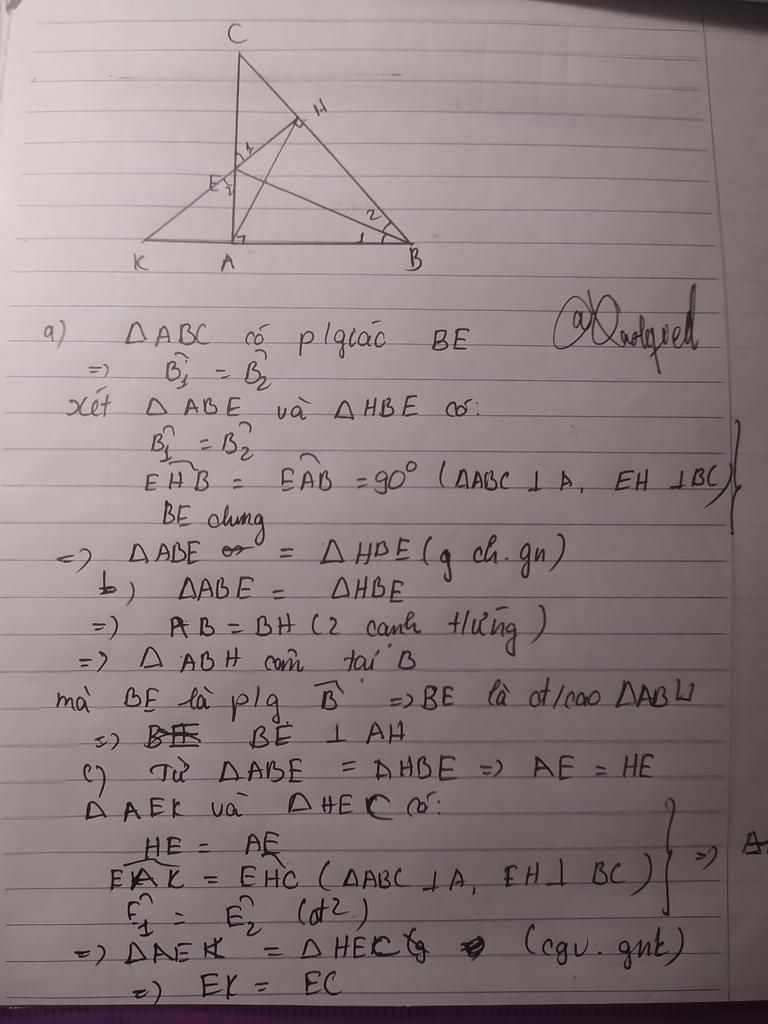 C
H
1
E
2
2
1
K
A
B
a) ΔABC có p/giác BE
=> B̂1 = B̂2
Xét ΔABE và ΔHBE có:
B̂1 = B̂2
EĤB = EÂB = 90° (ΔABC ⊥ A, EH ⊥ BC)
BE chung
=> ΔABE = ΔHBE (g ch.gn)
b) ΔABE = ΔHBE
=> AB = BH (2 cạnh t/ứng)
=> Δ ABH cân tại B
mà BE là p/g B̂ => BE là đ/cao ΔABH
=> BE ⊥ AH
c) Từ ΔABE = ΔHBE => AE = HE
ΔAEK và ΔHEC có:
HE = AE
EÂK = EĤC (ΔABC ⊥ A, EH ⊥ BC) =>
Ê1 = Ê2 (đ²)
=> ΔAEK = ΔHEC (cgv.gnk)
=> EK = EC